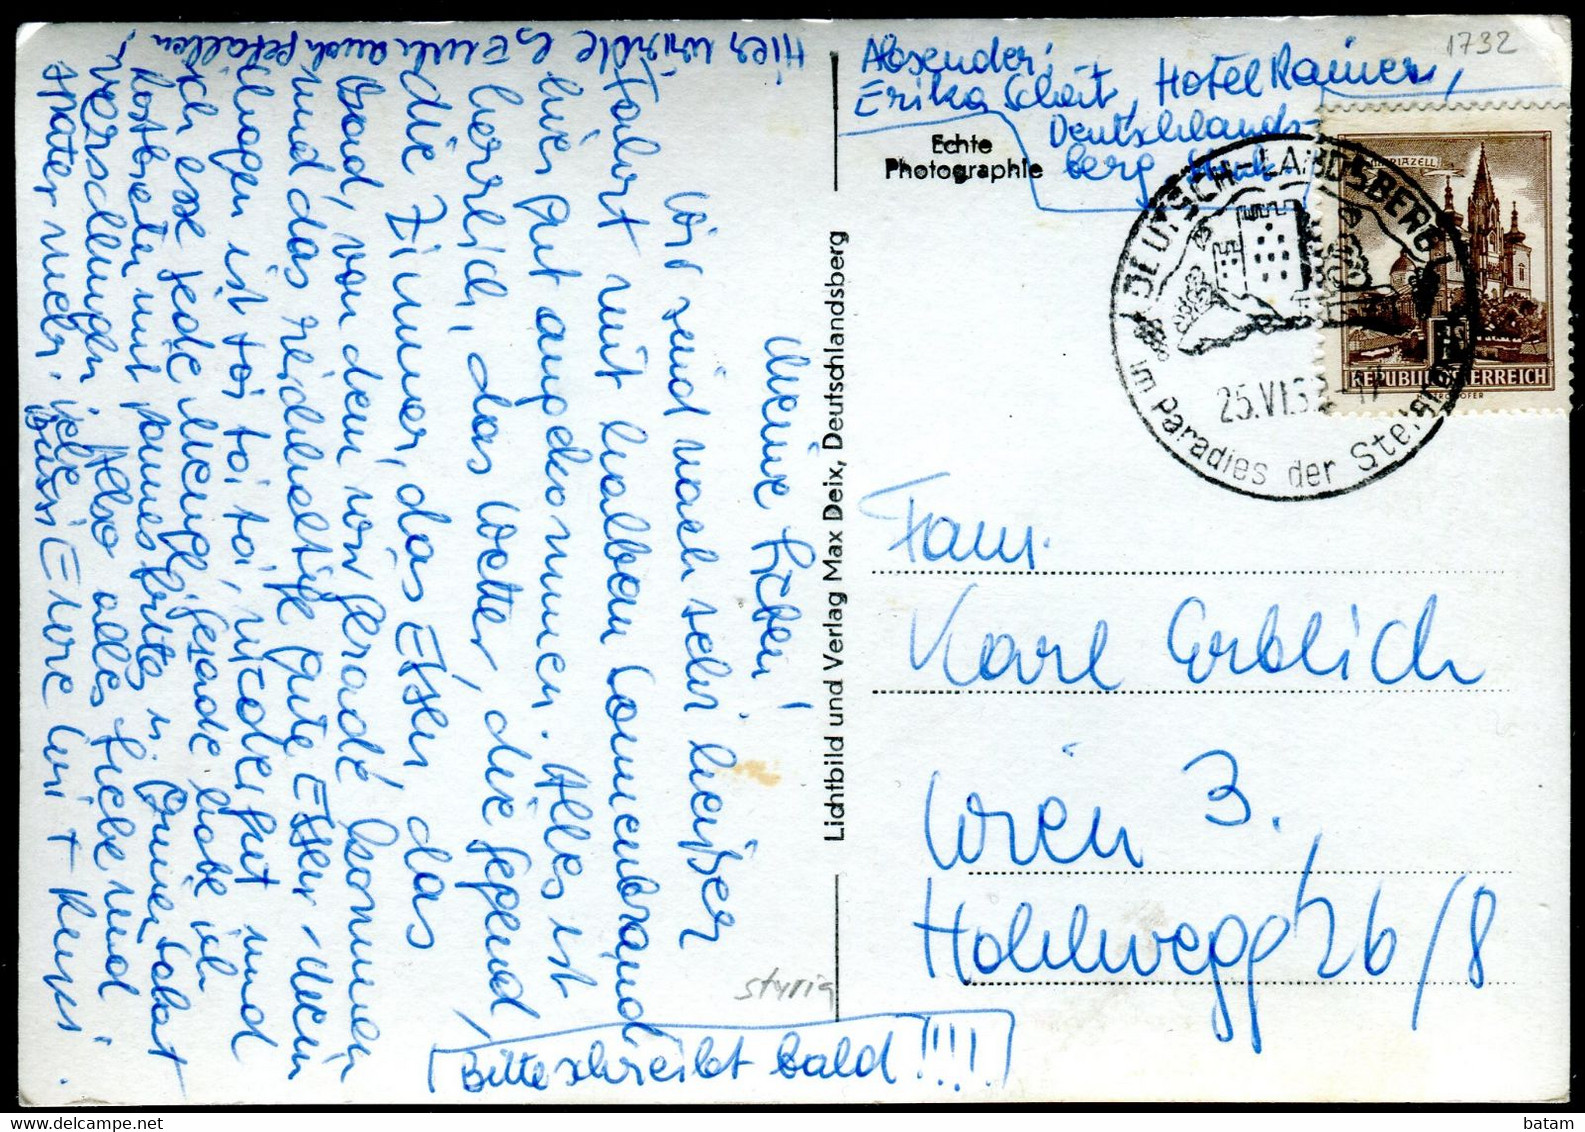 Meine Lieben!
Wir sind nach sehr heißer
Fahrt mit halbem Sonnenbrand
hier gut angekommen. Alles ist
herrlich, das Wetter, die Gegend,
die Zimmer, das Essen, das
Bad, von dem wir gerade kommen
und das reichhaltige gute Essen. Mein
Magen ist toi toi toi, wieder gut und
ich esse jede Menge, gerade habe ich
Rostbraten mit pommes frites u. Gurkensalat
verschlungen. Also alles Liebe und
später mehr.
Bussi Eure Eri +
Hier würde es Euch auch gefallen!
Bitte schreibt bald!!!!
Absender:
Erika Scheit, Hotel Rainer,
Deutschlands-
berg
Echte
Photographie
1732
Lichtbild und Verlag Max Deix, Deutschlandsberg
styria
MARIAZELL
REPUBLIK ÖSTERREICH
DEUTSCH-LANDSBERG
25.VI.
im Paradies der Steierm
Fam.
Karl Erblich
Wien 3.
Hohlwegg 26/8
batam